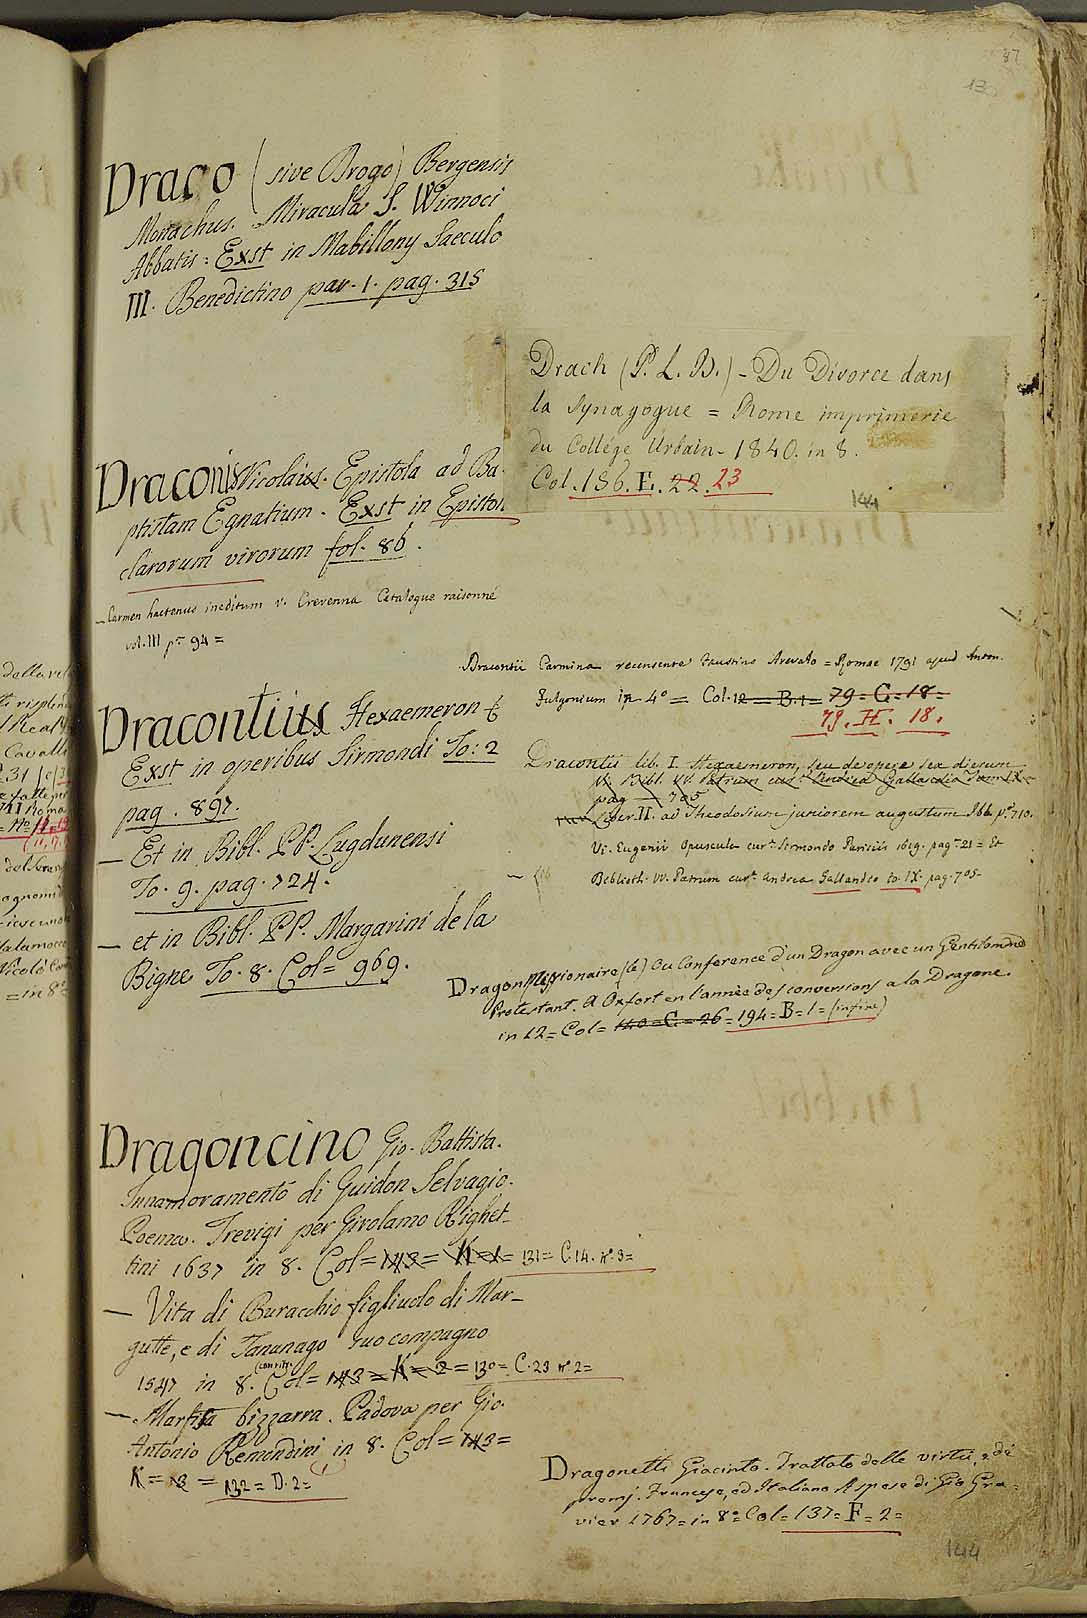 87
130
Draco (sive Drogo) Bergensis
Monachus. Miracula S. Winnoci
Abbatis: Exst in Mabillony Saeculo
III. Benedictino par. 1. pag. 315
Drach (P. L. B.) - Du Divorce dans
la Synagogue = Rome imprimerie
du Collége Urbain - 1840. in 8.
Col. 186. E. 22. 23
144
Draconis Nicolaus. Epistola ad Ba-
ptistam Egnatium. Exst in Epistol.
clarorum virorum fol. 86.
— Carmen hactenus ineditum v. Crevenna Catalogue raisonné
vol. III p.e 94 =
Dracontii Carmina recensente Faustino Arevalo = Romae 1791 apud Anton.
Fulgonium in 4° = Col. 12 = B. 1 = 79 = G. 18 =
79. H. 18.
Dracontius Hexaemeron
Exst in operibus Sirmondi To: 2
pag. 897.
— Et in Bibl. PP. Lugdunensi
To. 9. pag. 724.
— et in Bibl. PP. Margarini de la
Bigne To. 8. Col = 969.
Dracontii lib. I. Hexaemeron, seu de opere sex dierum
V. Bibl. VV. Patrum cur. Andrea Gallandia Tom IX
pag 705
Liber II. ad Theodosium juniorem augustum Ibb. p.a 710.
Vi. Eugenii Opuscula cur.e Sirmondo Parisiis 1619. pag. 21 = Et
Biblioth. VV. Patrum cur.e Andrea Gallandio to. IX. pag. 705.
Dragon Missionaire (le) Ou Conference d'un Dragon avec un Gentilomme
Protestant. A Oxfort en l'année des conversions a la Dragone
in 12 = Col = 140 = C = 26 = 194 = B = 1 = (in fine)
Dragoncino Gio. Battista.
Innamoramento di Guidon Selvagio.
Poema. Trevigi per Girolamo Righet-
tini 1637 in 8. Col = 143 = K = 1 = 131 = C. 14. n.° 3 =
— Vita di Buracchio figliuolo di Mar-
gutte, e di Tananago suo compagno
1547 in 8. Col = 143 = K = 2 = 130 = C. 23 n.° 2 =
— Marfisa bizzarra. Padova per Gio.
Antonio Remondini in 8. Col = 143 =
K = 3 = 132 = D. 2 =
Dragonetti Giacinto. Trattato delle virtù, e di
premj. Francese, ed Italiano A spese di Gio Gra-
vier 1767 = in 8° = Col = 137 = F = 2 =
144